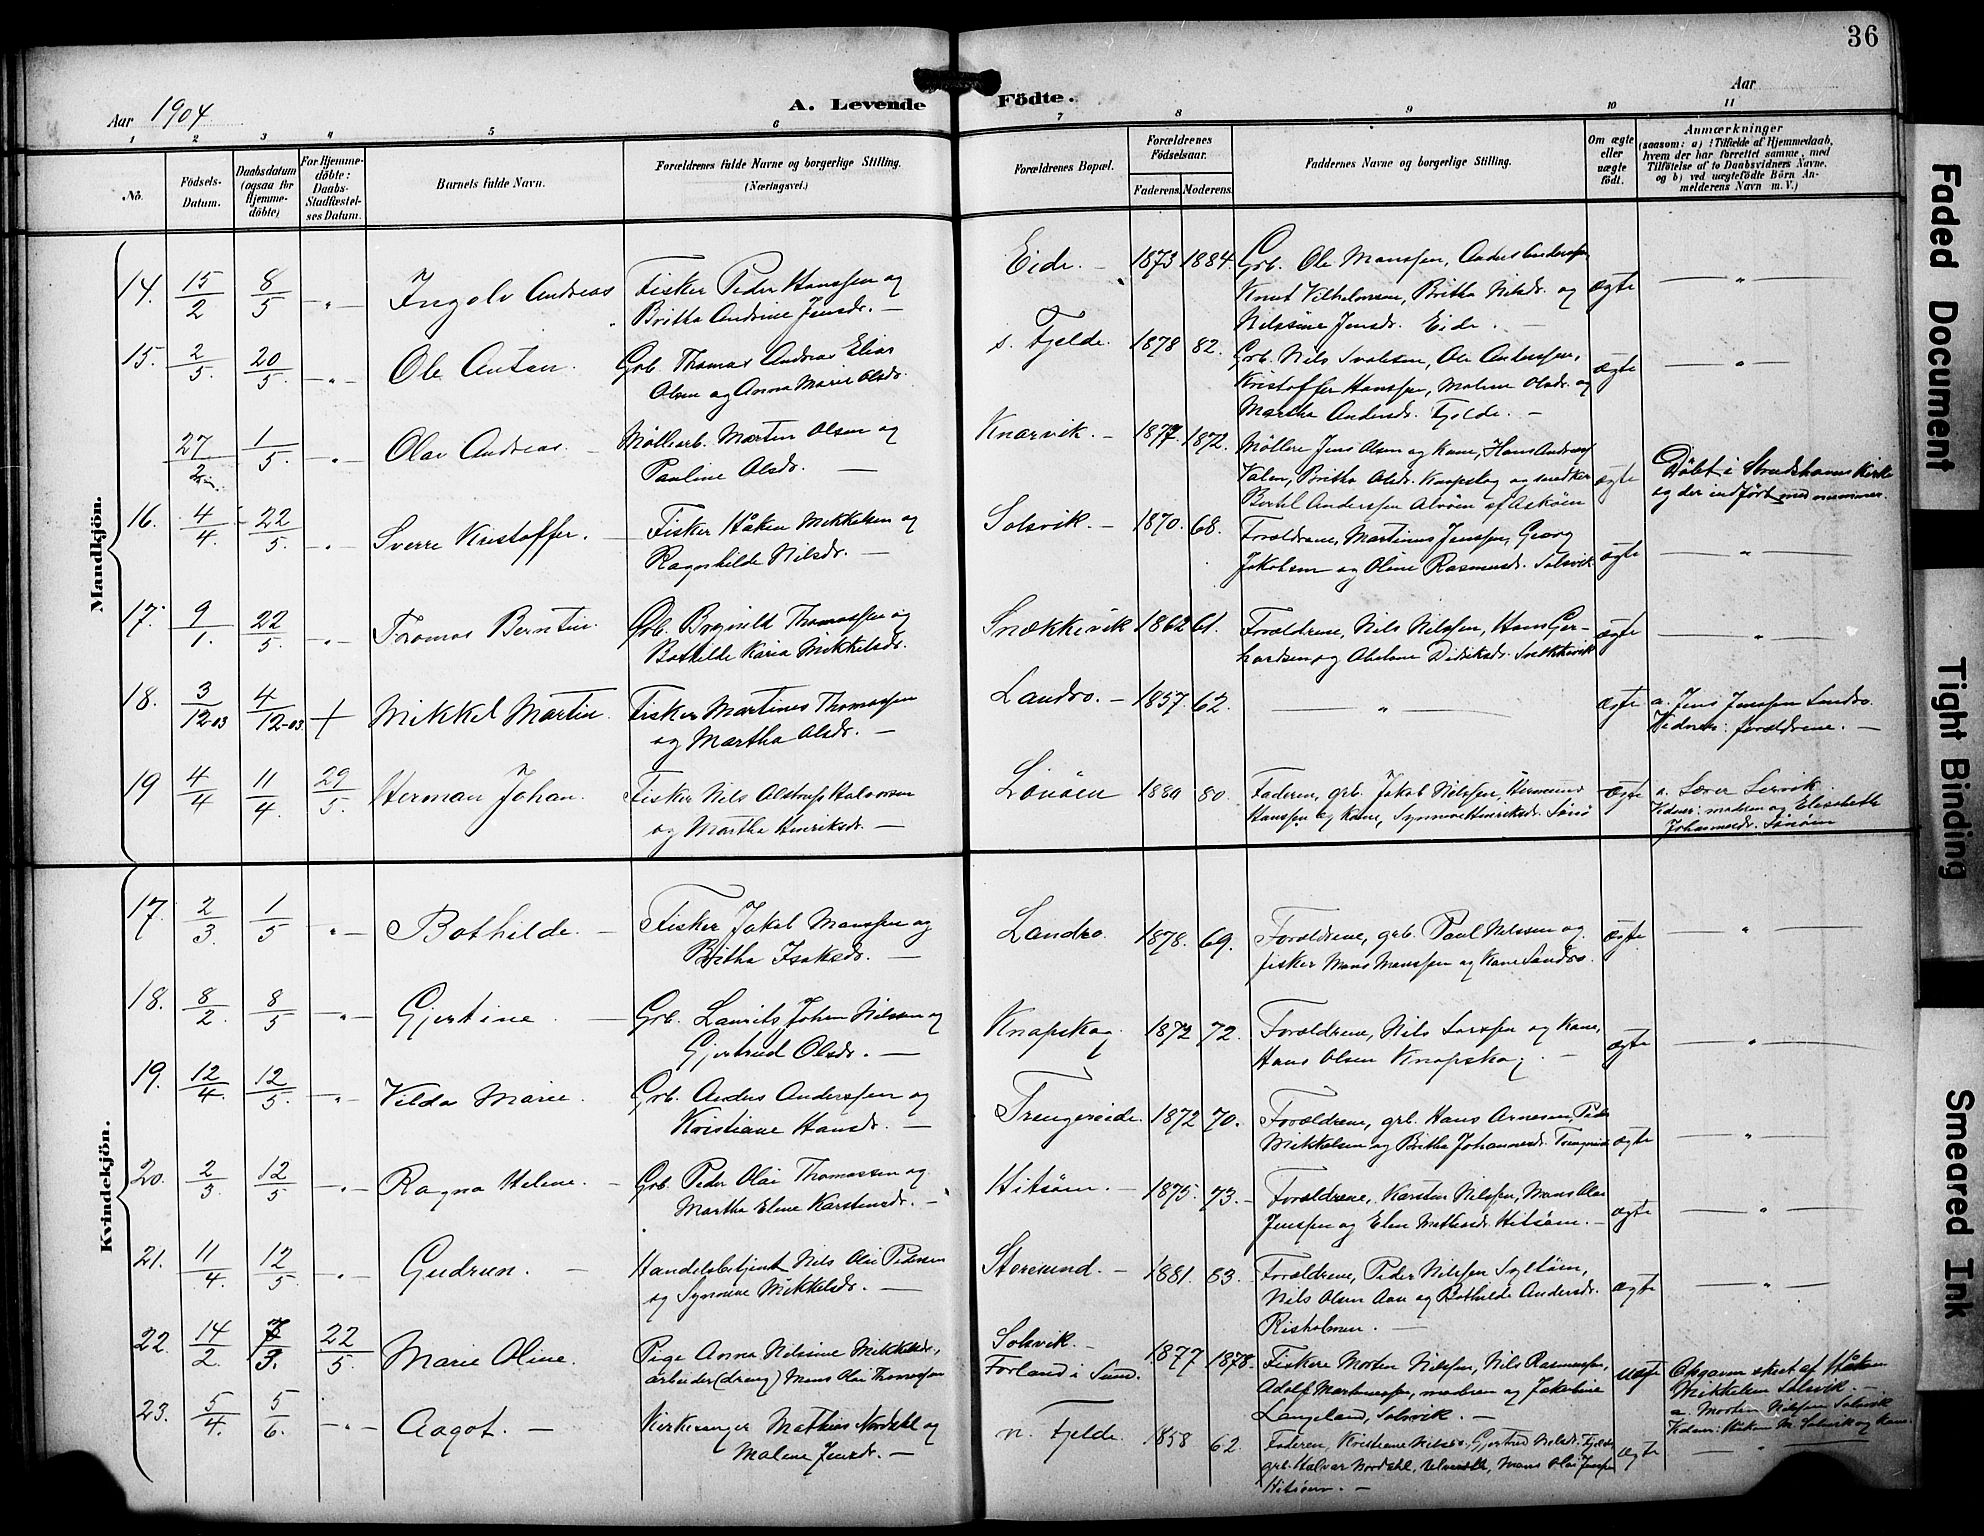 36
Aar 1904
A. Levende Födte.
Aar
1 2 3 4 5 6 7 8 9 10 11
No.
Födsels-Datum.
Daabsdatum (ogsaa for Hjemme-döbte)
For Hjemme-döbte: Daabs-Stadfæstel-ses Datum.
Barnets fulde Navn.
Forældrenes fulde Navne og borgerlige Stilling.
(Næringsvei.)
Forældrenes Bopæl.
Forældrenes Födselsaar.
Faderens. Moderens.
Faddernes Navne og borgerlige Stilling.
Om ægte eller uægte födt.
Anmærkninger
(saasom: a) i Tilfælde af Hjemmedaab,
hvem der har forrettet samme, med
Tilföielse af to Daabsvidners Navne,
og b) ved uægtefödte Börn An-
melderens Navn m. V.)
Mandkjön.
14. 15/2 8/5 - " - Ingolv Andreas Fisker Peder Hanssen og
Britha Andrine Jensdr. —
Eide. — 1873 1884. Grb. Ole Monssen, Anders Anderssen
Knut Vilhelmsen, Britha Nilsdr. og
Nilssine Jensdr. Eide. — ægte — " —
15. 2/5. 20/5. - " - Ole Anton. Grb. Thomas Andreas Elias
Olsen og Anna Marie Olsdr.
s. Fjelde. 1878 82. Grb. Nils Olsen, Ole Anderssen,
Kristoffer Hanssen, Malene Olsdr. og
Martha Andersdr. Fjelde. — ægte — " —
27/2 1/5. - " - Olav Andreas. — Möllearb. Morten Olsen og
Pauline Olsdr. —
Knarvik. — 1877. 1872. Möller Jens Olsen og Kone, Hans Andreas
Valen, Britha Olsdr. Knapskog og snedker
Bertel Anderssen Alvöen af Asköen ægte Döbt i Strudshavns Kirke
og der indfört med nummer.
16. 4/4. 22/5. - " - Sverre Kristoffer. — Fisker Håken Mikkelsen og
Ragnhilde Nilsdr. —
Solsvik. — 1870. 68. Forældrene, Martinus Jenssen, Georg
Jakobsen og Oline Rasmusdr. Solsvik ægte — " —
17. 9/1. 22/5. " - Tromas Berntin. Grb. Brynild Thomassen og
Bothilde Karia Mikkelsdr.
Snekkevik 1862 61. Forældrene, Nils Nilssen, Hans Ger-
hardsen og Abelone Didriksdr. Snekkevik ægte — " —
18. 3/12-03 4/12-03. + Mikkel Martin. Fisker Martines Thomassen
og Martha Olsdr. —
Landro. — 1857. 62. — " — ægte a. Jens Jenssen Landro.
Vidner: forældrene. —
19 4/4 11/4. 29/5. Herman Johan. Fisker Nils Halvorsen
og Martha Henriksdr. —
Lönöen 1880 80. Faderen, grb. Jakob Nilssen,
Hanssen og Kone, Synnove Henriksdr. ægte a. Lærer Lervik.
Vidner: moderen og Elisabeth
Johannesdr.
Kvindekjön.
17. 2/3. 1/5 " - Bothilde. — Fisker Jakob Monssen og
Britha Isaksdr. —
Landro. 1878. 69. Forældrene, grb. Paul Nilssen og
fisker Mons Monssen og Kone Landro. ægte — " —
18. 8/2. 8/5 - " - Gjertine. — Grb. Laurits Johan Nilssen og
Gjertrud Olsdr. —
Knapskog. 1872 72. Forældrene, Nils Larssen og Kone,
Hans Olsen Knapskog. — ægte — " —
19. 12/4. 12/5. - " - Vilda Marie. Grb. Anders Anderssen og
Kristiane Hansdr. —
Trengereide. 1872 70. Forældrene, grb. Hans Arnesen, Peder
Mikkelsen og Britha Johannesdr. Trengereide ægte — " —
20. 2/3. 12/5 - " - Ragna Helene. — Grb. Peder Olai Thomassen og
Martha Elene Karstensdr. —
Hitsöen. — 1875. 73. — Forældrene, Karsten Nilssen, Mons Olai
Jenssen og Elen Hitsöen. — ægte — " —
21. 11/4. 12/5. - " - Gudrun. — Handelsbetjent Nils Olai Pedersen
og Synnove Mikkelsdr. —
Storesund. — 1881. 83. Forældrene, Peder Nilssen Syltöen,
Nils Olsen Aae og Bothilde Andersdr.
Risholmen. — ægte — " —
22. 14/2. 7/3. 22/5. Marie Oline. Pige Anna Nilssine Mikkelsdr.,
arbeider (dreng) Mons Olai Thomassen
Solsvik. —
Forland i Sund. 1877 1878. Fiskere Morten Nilssen, Nils Rasmussen,
Adolf Martinussen, moderen og Jakobine
Langeland, Solsvik. — uægte Opgaven skeet af Håken
Mikkelsen Solsvik. —
a. Morten Nilssen Solsvik
Vidner: Håken M. Solsvik og Kone.
23. 5/4. 5/6. - " - Aagot. — Kirkesanger Mathias Nordahl og
Malene Jensdr. —
n. Fjelde. 1858 62. Faderen, Kristiane Nilsdr. Gjertrud Nilsdr. Fjelde
grb. Halvar Nordahl, Mons Olai Jenssen
Hitsöen. — ægte — " —
Faded Document
Tight Binding
Smeared Ink